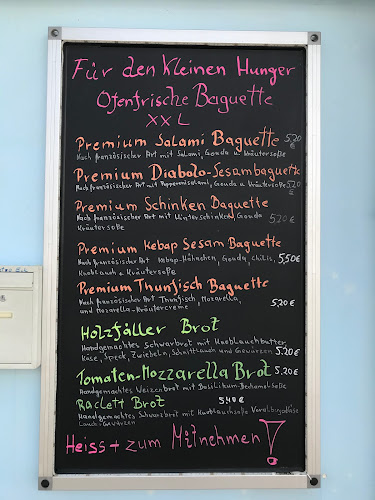 Für den kleinen Hunger
Ofenfrische Baguette
XXL
Premium Salami Baguette 5,20 €
Nach französischer Art mit Salami, Gouda u. Kräutersoße
Premium Diabolo-Sesambaguette
Nach französischer Art mit Pepperonisalami, Gouda u. Kräutersoße 5,20 €
Premium Schinken Baguette
Nach französischer Art mit Hinterschinken, Gouda
Kräutersoße 5,20 €
Premium Kebap Sesam Baguette
Nach französischer Art Kebap-Hähnchen, Gouda, Chilis, 5,50€
Knoblauch & Kräutersoße
Premium Thunfisch Baguette
Nach französischer Art Thunfisch, Mozarella,
und Mozarella-Kräutercreme 5,20 €
Holzfäller Brot
Handgemachtes Schwarbrot mit Knoblauchbutter,
Käse, Speck, Zwiebeln, Schnittlauch und Gewürzen 5.20€
Tomaten-Mozzarella Brot 5.20€
Handgemachtes Weizenbrot mit Basilikum-Bechamel-Soße
Raclett Brot 5,40 €
Handgemachtes Schwarzbrot mit Knoblauchsoße Vorarlbergkäse
Lauch-Gewürzen
Heiss + zum Mitnehmen!